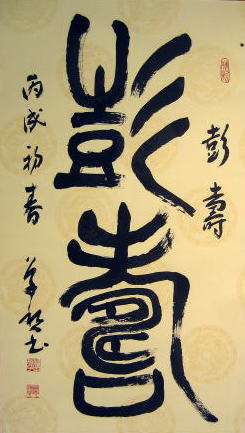 彭壽
彭壽
丙戌初春